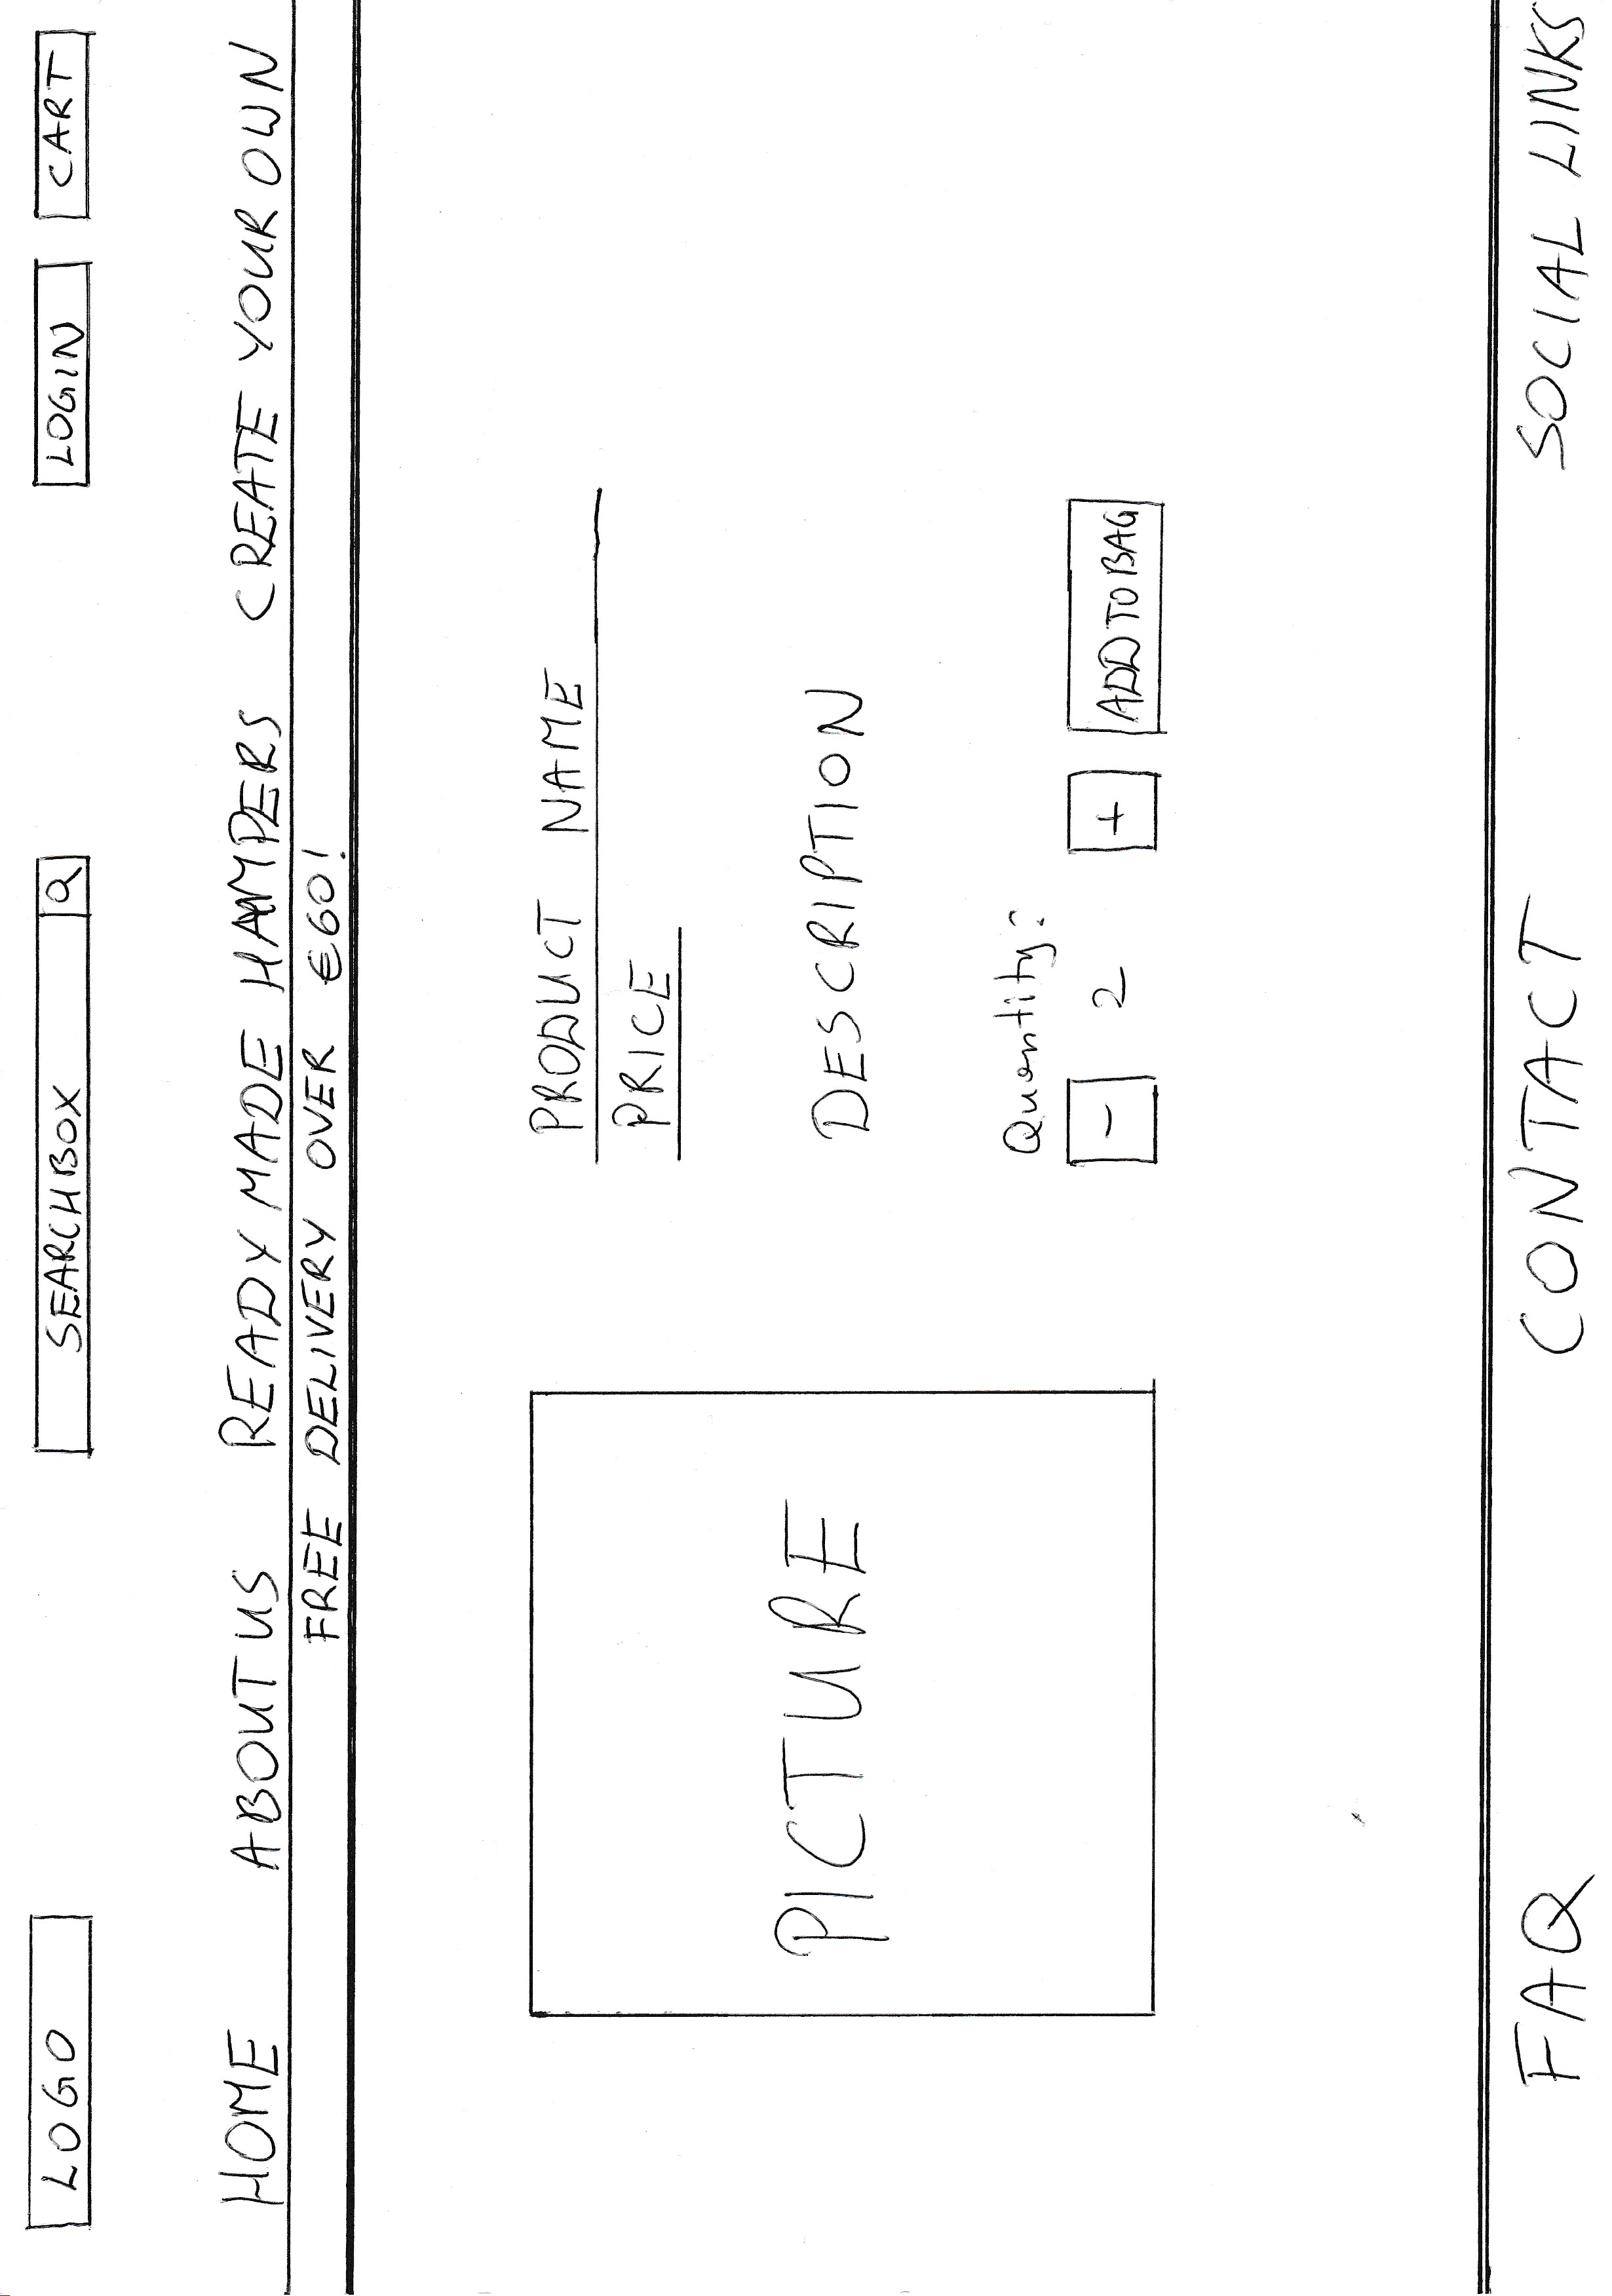 LOGO SEARCHBOX LOGIN CART
HOME ABOUT US READY MADE HAMPERS CREATE YOUR OWN
FREE DELIVERY OVER €60!
PRODUCT NAME
PRICE
PICTURE
DESCRIPTION
Quantity:
- 2 + ADD TO BAG
FAQ CONTACT SOCIAL LINKS